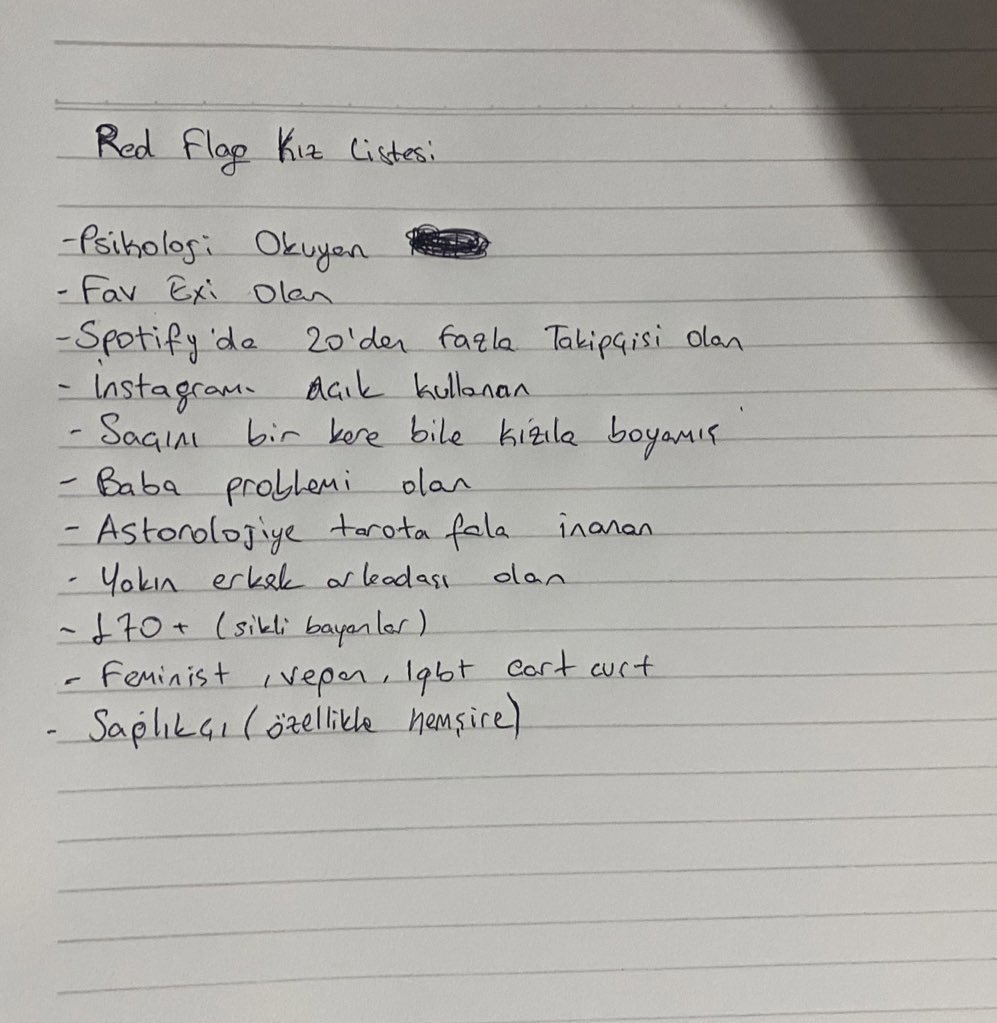 Red Flag Kız Listesi
-Psikoloji Okuyan
- Fav Exi Olan
-Spotify'da 20'den fazla Takipçisi olan
- İnstagramı Açık kullanan
- Saçını bir kere bile kızıla boyamış
- Baba problemi olan
- Astorolojiye tarota fala inanan
- Yakın erkek arkadaşı olan
- 170+ (sikli bayanlar)
- Feminist, vepen, lgbt cart curt
- Sağlıkçı (özellikle hemşire)